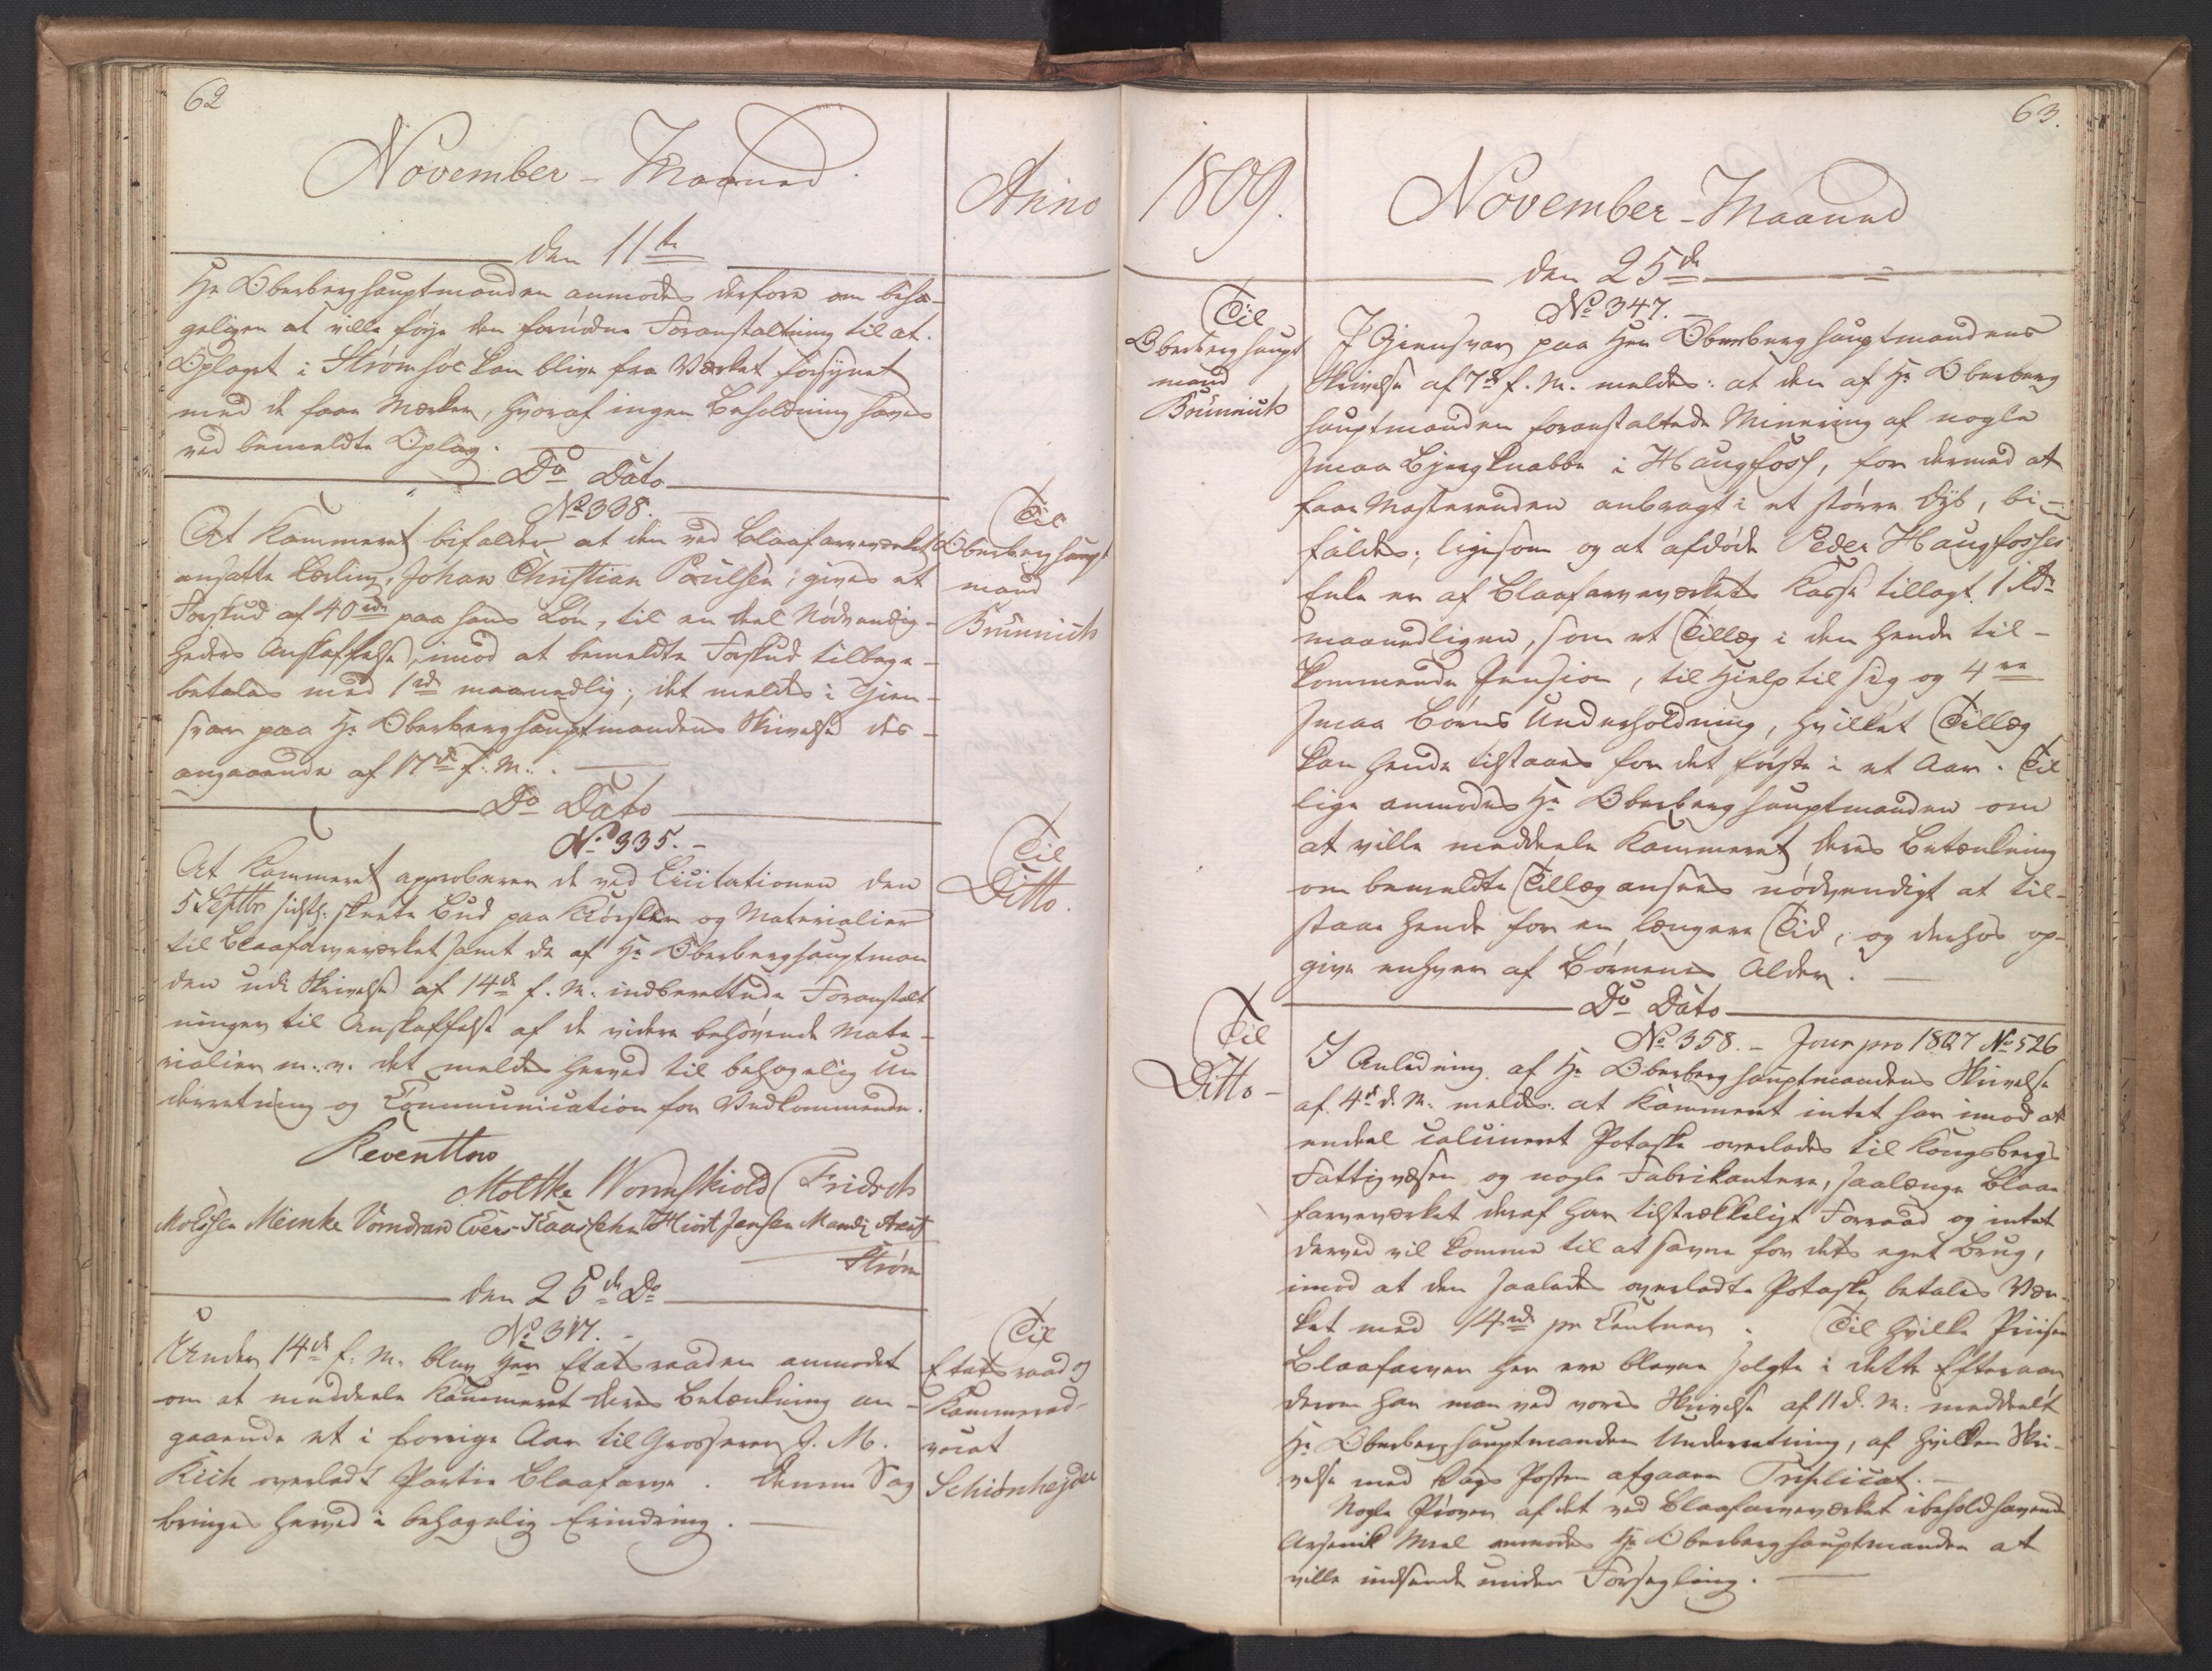 62
November-Maaned.
Anno
den 11te
Hr Oberberghauptmanden anmodes derfore om beha-
geligen at ville føye den fornødne Foranstaltning til at
Oplaget i Strømsöe kan blive fra Værket forsynet
med de faae Mærker, hvoraf ingen Beholdning haves
ved bemeldte Oplag.
Do Dato
No 338.
Til
Oberberghaupt
mand
Brünnich
At Kammeret bifalder at den ved Blaafarveværket
ansatte Lærling, Johan Christian Poulsen, gives et
Forskud af 40 rdr paa hans Løn, til en deel Nødvendig-
heders Anskaffelse, imod at bemeldte Forskud tilbage-
betales med 1 rd maanedlig; det meldes i Gien-
svar paa Hr Oberberghauptmandens Skrivelse des-
angaaende af 17de f. M.
Do Dato
No 335.
Til
Ditto.
At Kammeret approberer de ved Licitationen den
5 Septbr sidstl. skeete Bud paa Kiørsler og Materialier
til Blaafarveværket samt de af Hr Oberberghauptman
den udi Skrivelse af 14de f. M. indberettede Foranstalt
ninger til Anskaffelse af de videre behøvende Mate-
rialier m. v. det meldes herved til behagelig Un
derretning og Communication for Vedkommende.
Reventlow
Moltke Wormskiold Fridsch
Meinke Vorndran Evers Hiort Jensen
Strøm
den 25de Do
No 317.
Til
Etatsraad og
Kammerad-
vocat
Schiønheyder
Under 14de f. M. blev Herr Etatsraaden anmodet
om at meddeele Kammeret Deres Betænkning an-
gaaende et i forrige Aar til Grosserer J. M.
Kick overladt Partie Blaafarve. Denne Sag
bringes herved i behagelig Erindring.
63.
1809.
November-Maaned
den 25de
No 347.
Til
Oberberghaupt
mand
Brünnich
I Giensvar paa Herr Oberberghauptmandens
Skrivelse af 7de f. M. meldes: at den af Hr Oberberg
hauptmanden foranstaltede Minering af nogle
smaa Bjergknabbe i Haugfoss, for dermed at
faae Masterenden anbragt i et større Dyb, bi-
faldes; ligesom og at afdøde Peder Haugfosses
Enke er af Blaafarveværkets Kasse tillagt 1 Rdr
maanedligen, som et Tillæg i den hende til-
kommende Pension, til Hielp til sig og 4re
smaa Børns Underholdning, hvilket Tillæg
kan hende tilstaaes for det første i et Aar. Til
lige anmodes Hr Oberberghauptmanden om
at ville meddeele Kammeret Deres Betænkning
om bemeldte Tillæg ansees nødvendigt at til-
staae hende for en længere Tid, og derhos op-
give enhver af Børnenes Alder.
Do Dato
No 358. - Jour pro 1807 No 526
Til
Ditto -
I Anledning af Hr Oberberghauptmandens Skrivelse
af 4de d. M. meldes: at Kammeret intet har imod at
endeel calcineret Potaske overlades til Kongsbergs
Fattigvæsen og nogle Fabrikantere, saalænge Blaae
farveværket deraf har tilstrækkeligt Forraad og intet
derved vil komme til at savne for dets eget Brug,
imod at den saaledes overladte Potaske betales Vær-
ket med 14 rdr pr Centner. Til hvilke Priiser
Blaafarver her ere blevne solgte i dette Efteraar
derom har man ved vores Skrivelse af 11 d. M. meddeelt
Hr Oberberghauptmanden Underretning, af hvilken Skri-
velse med Dags Posten afgaaer Triplicat.
Nogle Prøver af det ved Blaafarveværket i behold havende
Arsenik Meel anmodes Hr Oberberghauptmanden at
ville indsende under Forsegling.